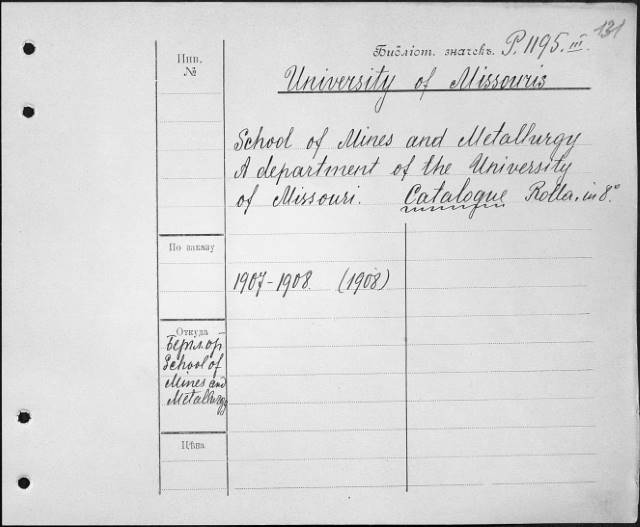 131
Инв.
№
Библіот. значекъ. P. 1195. III.
University of Missouris
School of Mines and Metallurgy
A department of the University
of Missouri. Catalogue Rolla. in 8°
По заказу
1907-1908. (1908)
Откуда
School of
Mines and
Metallurgy
Цѣна